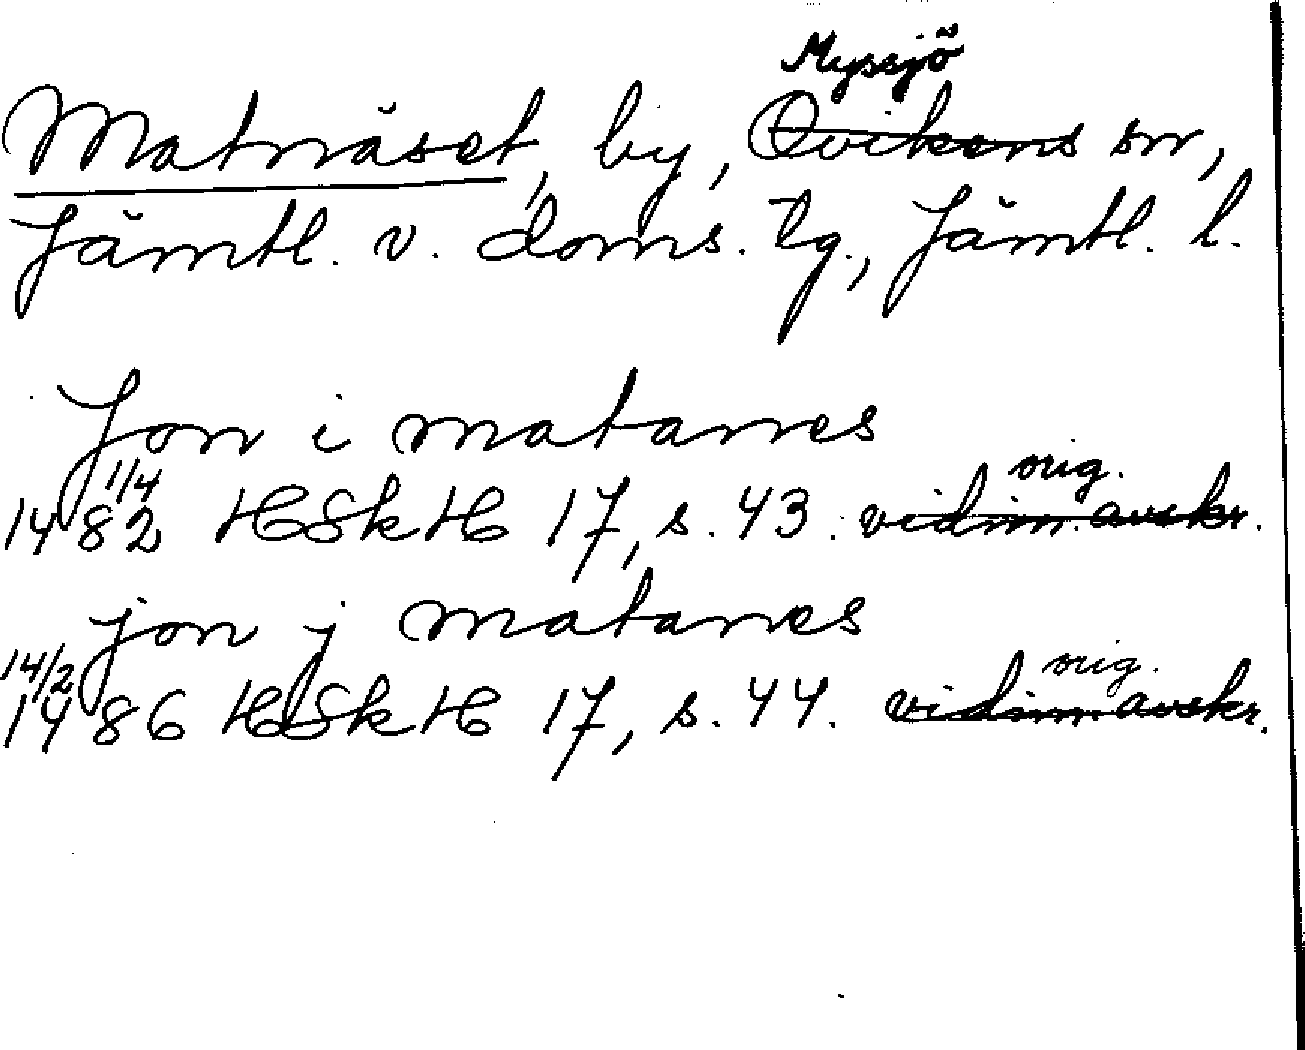 Myssjö
Matnäset, by, Ovikens sn,
Jämtl. v. doms. tg., Jämtl. l.
Jon i matanes
orig.
1/4 1482 HSkH 17, s. 43. vidim. avskr.
jon j matanes
orig.
14/2 1486 HSkH 17, s. 44. vidim. avskr.